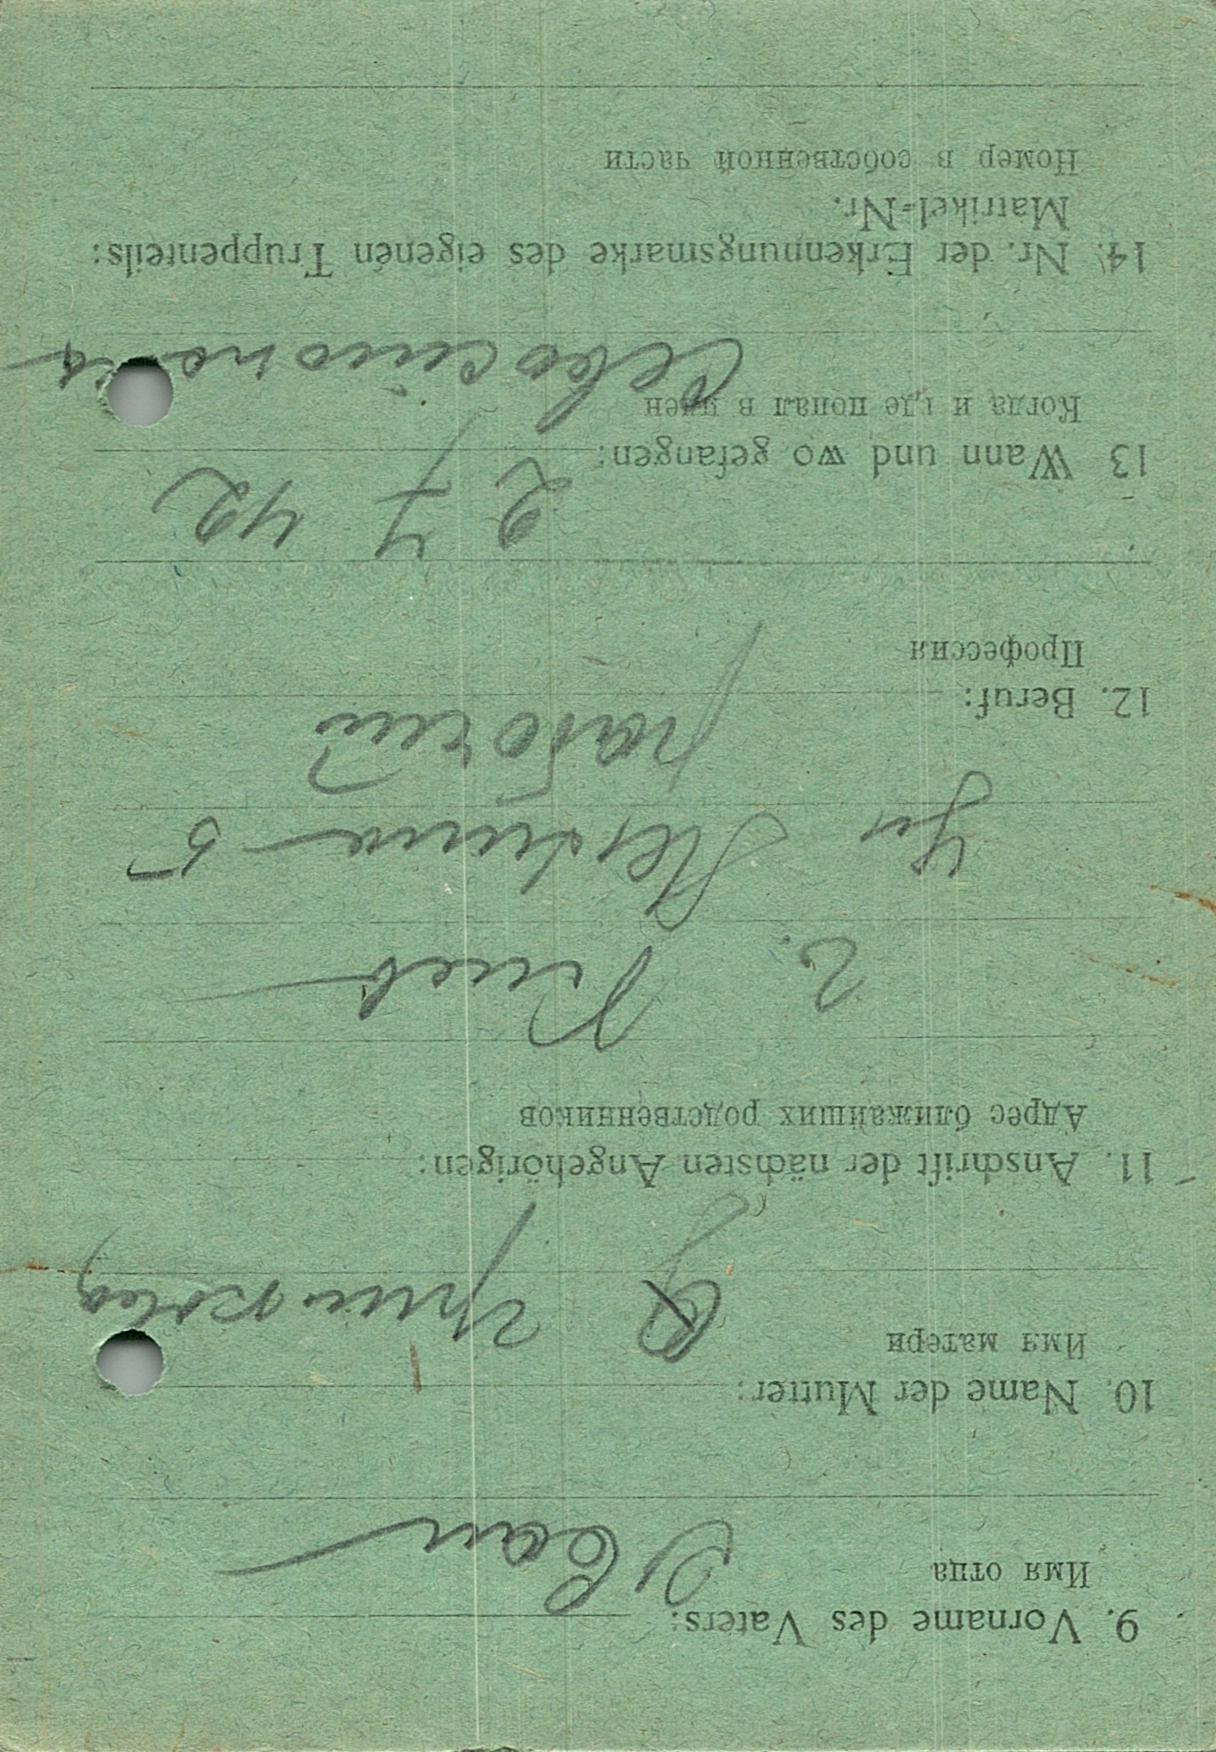 9. Vorname des Vaters:
Имя отца
Иван
10. Name der Mutter:
Имя матери
11. Anschrift der nächsten Angehörigen:
Адрес ближайших родственников
г. Киев
Ул
5
12. Beruf:
Профессия
рабочий
13 Wann und wo gefangen:
2 7 42
Когда и где попал в плен
Севостополь
14. Nr. der Erkennungsmarke des eigenen Truppenteils:
Matrikel-Nr.
Номер в собственной части